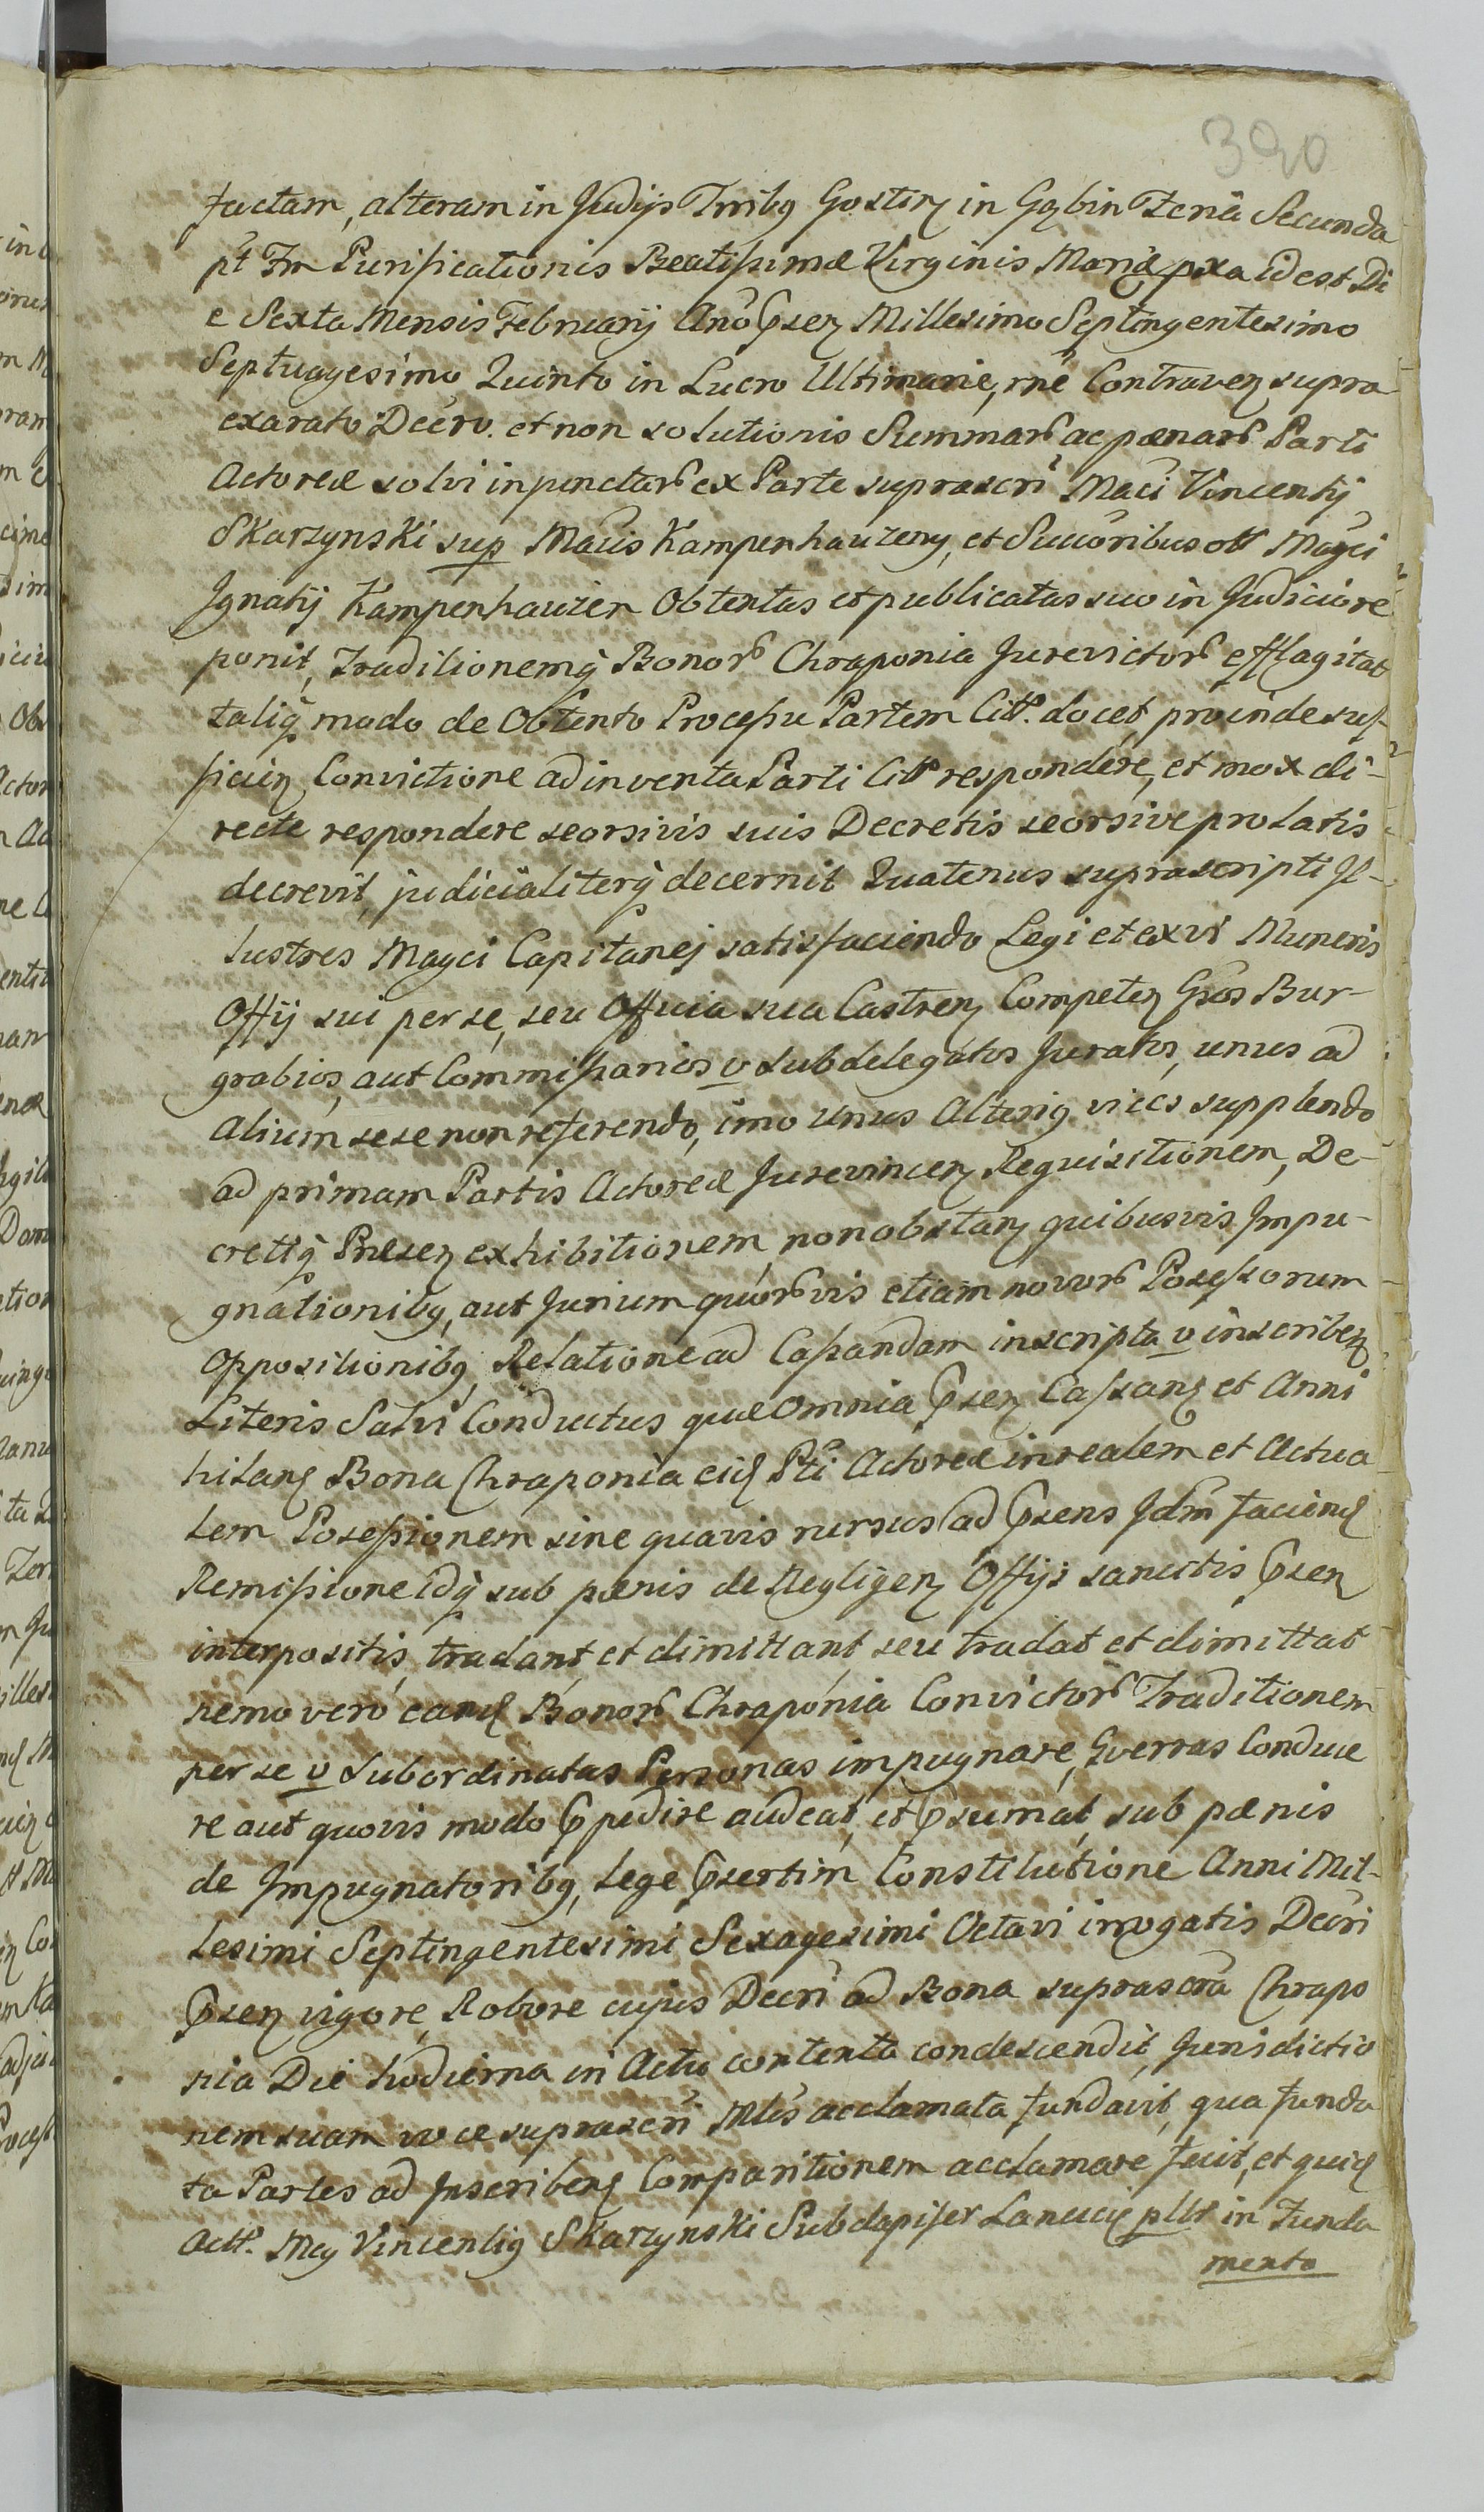 390
factam, alteram in Judijs Trribq Gostin in Gąbin Feria Secunda
pt Fm Purificationis Beatissimæ Virginis Mariæ pxa id est Di
e Sexta Mensis Februarij Ano Psen Millesimo Septingentesimo
Septuagesimo Quinto in Lucro Ultimarie, rne Contraven supra
exarato Decro. et non solutionis Summarb ac pænarb Parti
Actoreæ solvi inpunctarb ex Parte suprascri Maci Vincentij
Skarzynski sup Macis Kampenhauzeny, et Succoribus ott Magci
Ignatij Kampenhauzen Obtentas et publicatas suo in Judicio re
ponit, Traditionemq Bonorb Chraponia Jurevictorb efflagitat
taliq modo de Obtento Processu Partem Citt. docet, proinde suf-
ficien Convictione adinventa Parti Citt respondere, et mox di-
recte respondere seorsivis suis Decretis seorsive prolatis
decrevit, judicialiterq decernit Quatenus suprascripti Jl-
lustres Magci Capitanej satisfaciendo Legi et ex vi Muneris
Offij sui per se, seu Officia sua Castren Competen Gros Bur-
grabios, aut Commissarios v Subdelegatos Juratos, unus ad
Alium sese non referendo, imo Unus Alteriq vices supplendo
ad primam Partis Actoreæ Jurevincen Requisitionem, De-
cretiq Præsen exhibitionem, nonobstan quibusvis Impu-
gnationibq, aut Jurium quorbvis etiam novorb Possessorum
Oppositionibq, Relatione ad Cassandam inscripta v inscriben
Literis Salvi Conductus quæ Omnia Psen Cassanq et Anni
hilanq Bona Chraponia eidq Pti Actoreæ in realem et Actua
lem Possessionem sine quavis rursus ad Psens Jdm faciend
Remissione idq sub pænis de Negligen Offijs sancitis Psen
interpositis tradant et dimittant seu tradat et dimittat
nemo vero eand Bonorb Chraponia Convictorb Traditionem
per se v Subordinatas Personas impugnare, Gverras Conduce
re aut quovis modo Ppedire audeat, et Psumat, sub pænis
de Impugnatoribq, Lege Psertim Constitutione Anni Mil-
lesimi Septingentesimi Sexagesimi Octavi irrogatis Decri
Psen vigore, Robore cujus Decri ad Bona suprascra Chrapo
nia Die hodierna in Actu contenta condescendit, Jurisdictio
nem suam voce suprascri Mlis acclamata fundavit, qua funda
ta Partes ad Inscribenq Comparitionem acclamare fecit, et quidq
Actt. Mcq Vincentiq Skarzynski Subdapifer Lancicq pltt in Funda
mento